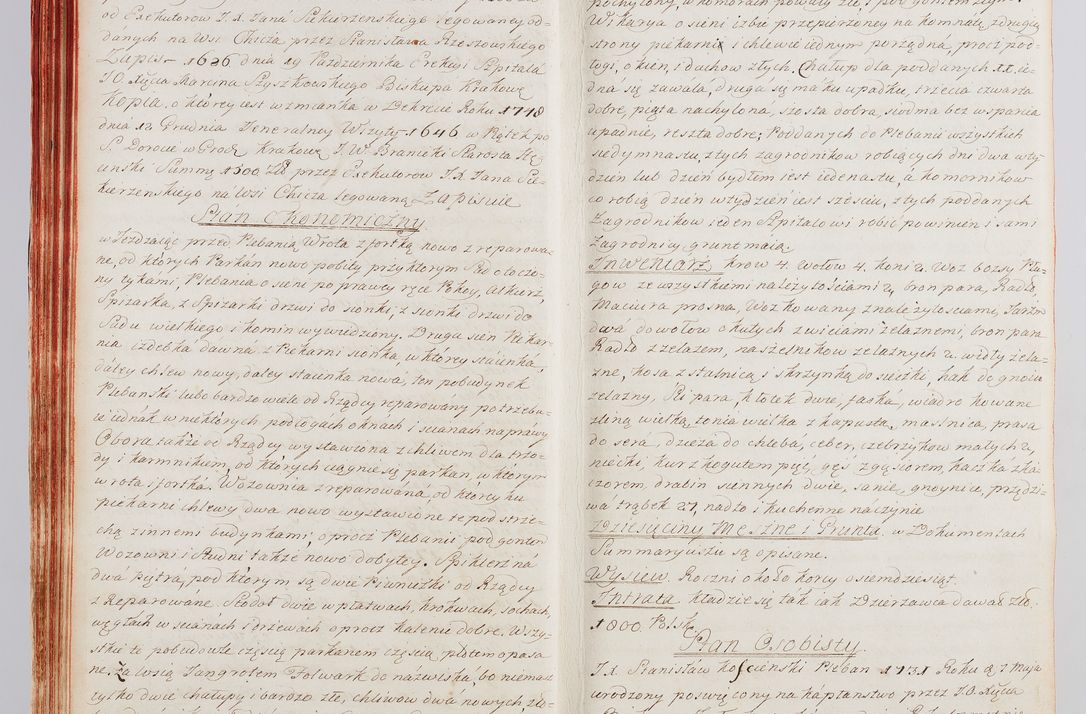 od Exekutorow J. X. Jana Siekierzenskiego legowaney od-
danych na Wsi Chicza przez Stanisława Rzeszowskiego
Zapis — 1626 dnia 19 Pazdziernika Erekcyi Szpitala
JO. Xięcia Marcina Szyszkowskiego Biskupa Krakowg
Kopia, o ktorey iest wzmianka w Dekrecie Roku 1748
dnia 12 Grudnia Generalney Wizyty — 1646 w Piątek po
S. Dorocie w Grodz. Krakowg J. W. Branicki Starosta
Summą 1600 przez Exekutorow J. X. Jana Sie-
kierzenskiego na Wsi Chicza legowaną Zapisuie
Stan Ekonomiczny
wieżdzaiąc przed Plebanią Wrota z fortką nowo zreparowa-
ne, od ktorych Parkan nowo pobity przy ktorym Sad otoczo-
ny tykami, Plebania o sieni po prawey ręce Pokoy, Alkierz,
Spizarka, z Spizarki drzwi do sionki, z sionki drzwi do
Sadu wielkiego i komin wywiedziony. Druga sień Piekar-
nia izdebka dawna z Piekarni sionka, w ktorey staienka,
daley chlew nowy, daley staienka nowa, ten pobudynek
Plebanski lubo bardzo wiele od Rządcy reparowany potrzebu-
ie iednak w niektorych podłogach oknach i scianach naprawy
Obora także od Rządcy wystawiona z chliwem dla trzo-
dy i karmnikiem, od ktorych ciągnie się parkan, w ktorym
wrota i fortka. Wozownia zreparowana, od ktorey ku
piekarni chlewy dwa nowo wystawione te pod strze-
chą z innemi budynkami, oprocz Plebanii pod gontem
Wozowni i Studni także nowo dobytey. Spiklerz na
dwa piętra, pod ktorym są dwie Piwniczki od Rządcy
zreparowane. Stodoł dwie w płatwach, krokwach, sochach,
węgłach w scianach i drzewach oprocz kalenic dobre. Wszy-
stkie te pobudowle częscią parkanem częscią płotem opasa
ne. Za wsią Langrotem Folwark do nazwiska, bo niemasz
tylko dwie chałupy i bardzo złe, chliwow dwa nowych, zło-
Wikarya o sieni izbie przepierzoney na komnatę z drugiey
strony piekarnia i chlewie iednym porządna, procz pod-
łogi, okien, i duchow złych. Chałup dla poddanych 11. ie-
dna się zawala, druga się ma ku upadku, trzecia czwarta
dobre, piąta nachylona, szosta dobra, siodma bez wsparcia
upadnie, reszta dobre; Poddanych do Plebanii wszystkich
siedymnastu, z tych zagrodnikow robiących dni dwa w ty-
dzien lub dzień bydłem iest iedenastu, a komornikow
co robią dzień w tydzień iest sześciu, z tych poddanych
Zagrodnikow ieden Szpitalowi robić powinien i sami
Zagrodnicy grunt maią.
Inwentarz krow 4. wołow 4. koni 2. Woz bosy Płu-
gow ze wszystkiemi należytościami 2, bron para, Radła,
Maciora prosna, Woz kowany z należytosciami, Jarzm
dwa do wołow okutych z wiciami żelaznemi, bron para
Radło z żelazem, naszelnikow żelaznych 2. widły żela-
zne, kosa z stalnicą i skrzynką do sieczki, hak do gnoiu
żelazny. Pił para, kłotek dwie, faska, wiadro kowane
z liną wielką, tonia wielka z kapusta, maslnica, prasa
do sera, dzieża do chleba, ceber, cebrzykow małych 2,
niecki, kur z kogutem pięć, gęś z gąsiorem, kaczka z ka-
czorem, drabin siennych dwie, sanie, gnoynice, przędzi-
wa trąbek 27, nadto i kuchenne naczynie.
Dziesięciny Meszne i Grunta. w Dokumentach
Summaryuszu są opisane.
Wysiew. Roczni około korcy osiemdziesiąt.
Intrata kładzie się tak iak Dzierzawca dawał zło.
1800. Pols.
Stan Osobisty.
J. X. Stanisław Koscienski Pleban 1731 Roku d. 7 Maja
urodzony poswięcony na kapłanstwo przez JO. Xięcia